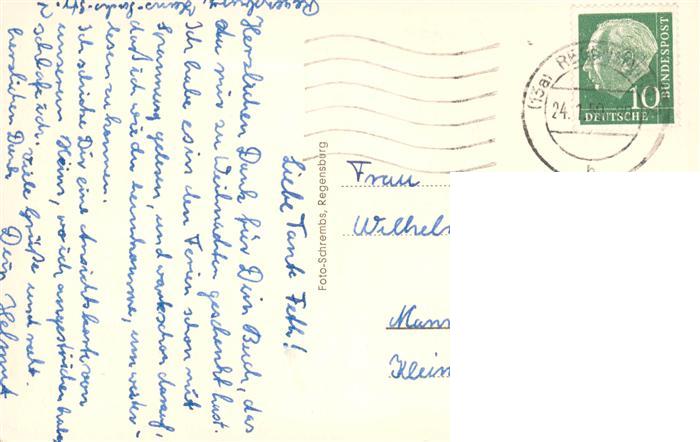 Regensburg, Hans-Sachs-Str. 2
Liebe Tante Feth!
Herzlichen Dank für Dein Buch, das
du mir zu Weihnachten geschenkt hast.
Ich habe es in den Ferien schon mit
Spannung gelesen, und warte schon darauf,
daß ich wieder heimkomme, um weiter-
lesen zu können.
Ich schicke Dir eine Ansichtskarte von
unserem Heim, wo ich angestrichen habe,
schlafe ich. Viele Grüße und
herzlichen Dank
Dein Helmut
Foto-Schrembs, Regensburg
Frau
Wilhel
Mann
Klein
(13a) RE
24.
b
DEUTSCHE
BUNDESPOST
10